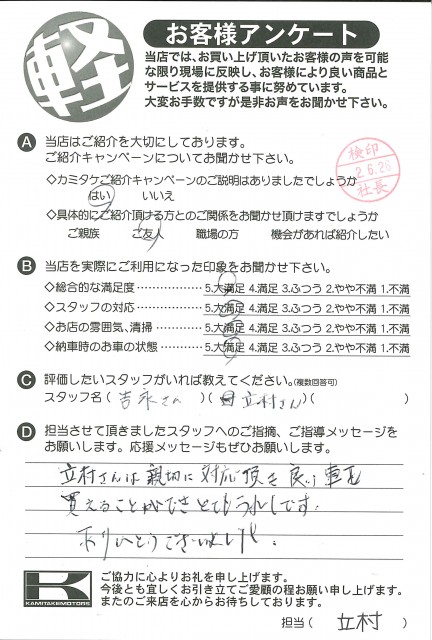 軽
お客様アンケート
当店では、お買い上げ頂いたお客様の声を可能
な限り現場に反映し、お客様により良い商品と
サービスを提供する事に努めています。
大変お手数ですが是非お声をお聞かせ下さい。
A 当店はご紹介を大切にしております。
ご紹介キャンペーンについてお聞かせ下さい。
検印
2.6.26
社長
◇カミタケご紹介キャンペーンのご説明はありましたでしょうか
はい いいえ
◇具体的にご紹介頂ける方とのご関係をお聞かせ頂けますでしょうか
ご親族 ご友人 職場の方 機会があれば紹介したい
B 当店を実際にご利用になった印象をお聞かせ下さい。
◇総合的な満足度……………… 5.大満足 4.満足 3.ふつう 2.やや不満 1.不満
◇スタッフの対応……………… 5.大満足 4.満足 3.ふつう 2.やや不満 1.不満
◇お店の雰囲気、清掃………… 5.大満足 4.満足 3.ふつう 2.やや不満 1.不満
◇納車時のお車の状態………… 5.大満足 4.満足 3.ふつう 2.やや不満 1.不満
C 評価したいスタッフがいれば教えてください。(複数回答可)
スタッフ名( 吉永さん )( 立村さん )( )
D 担当させて頂きましたスタッフへのご指摘、ご指導メッセージを
お願いします。応援メッセージもぜひお願いします。
立村さんは親切に対応頂き良い車を
買えることができとてもうれしです。
ありがとうございました。
K
KAMITAKEMOTORS
ご協力に心よりお礼を申し上げます。
今後とも宜しくお引き立てご愛顧の程お願い申し上げます。
またのご来店を心からお待ちしております。
担当( 立村 )